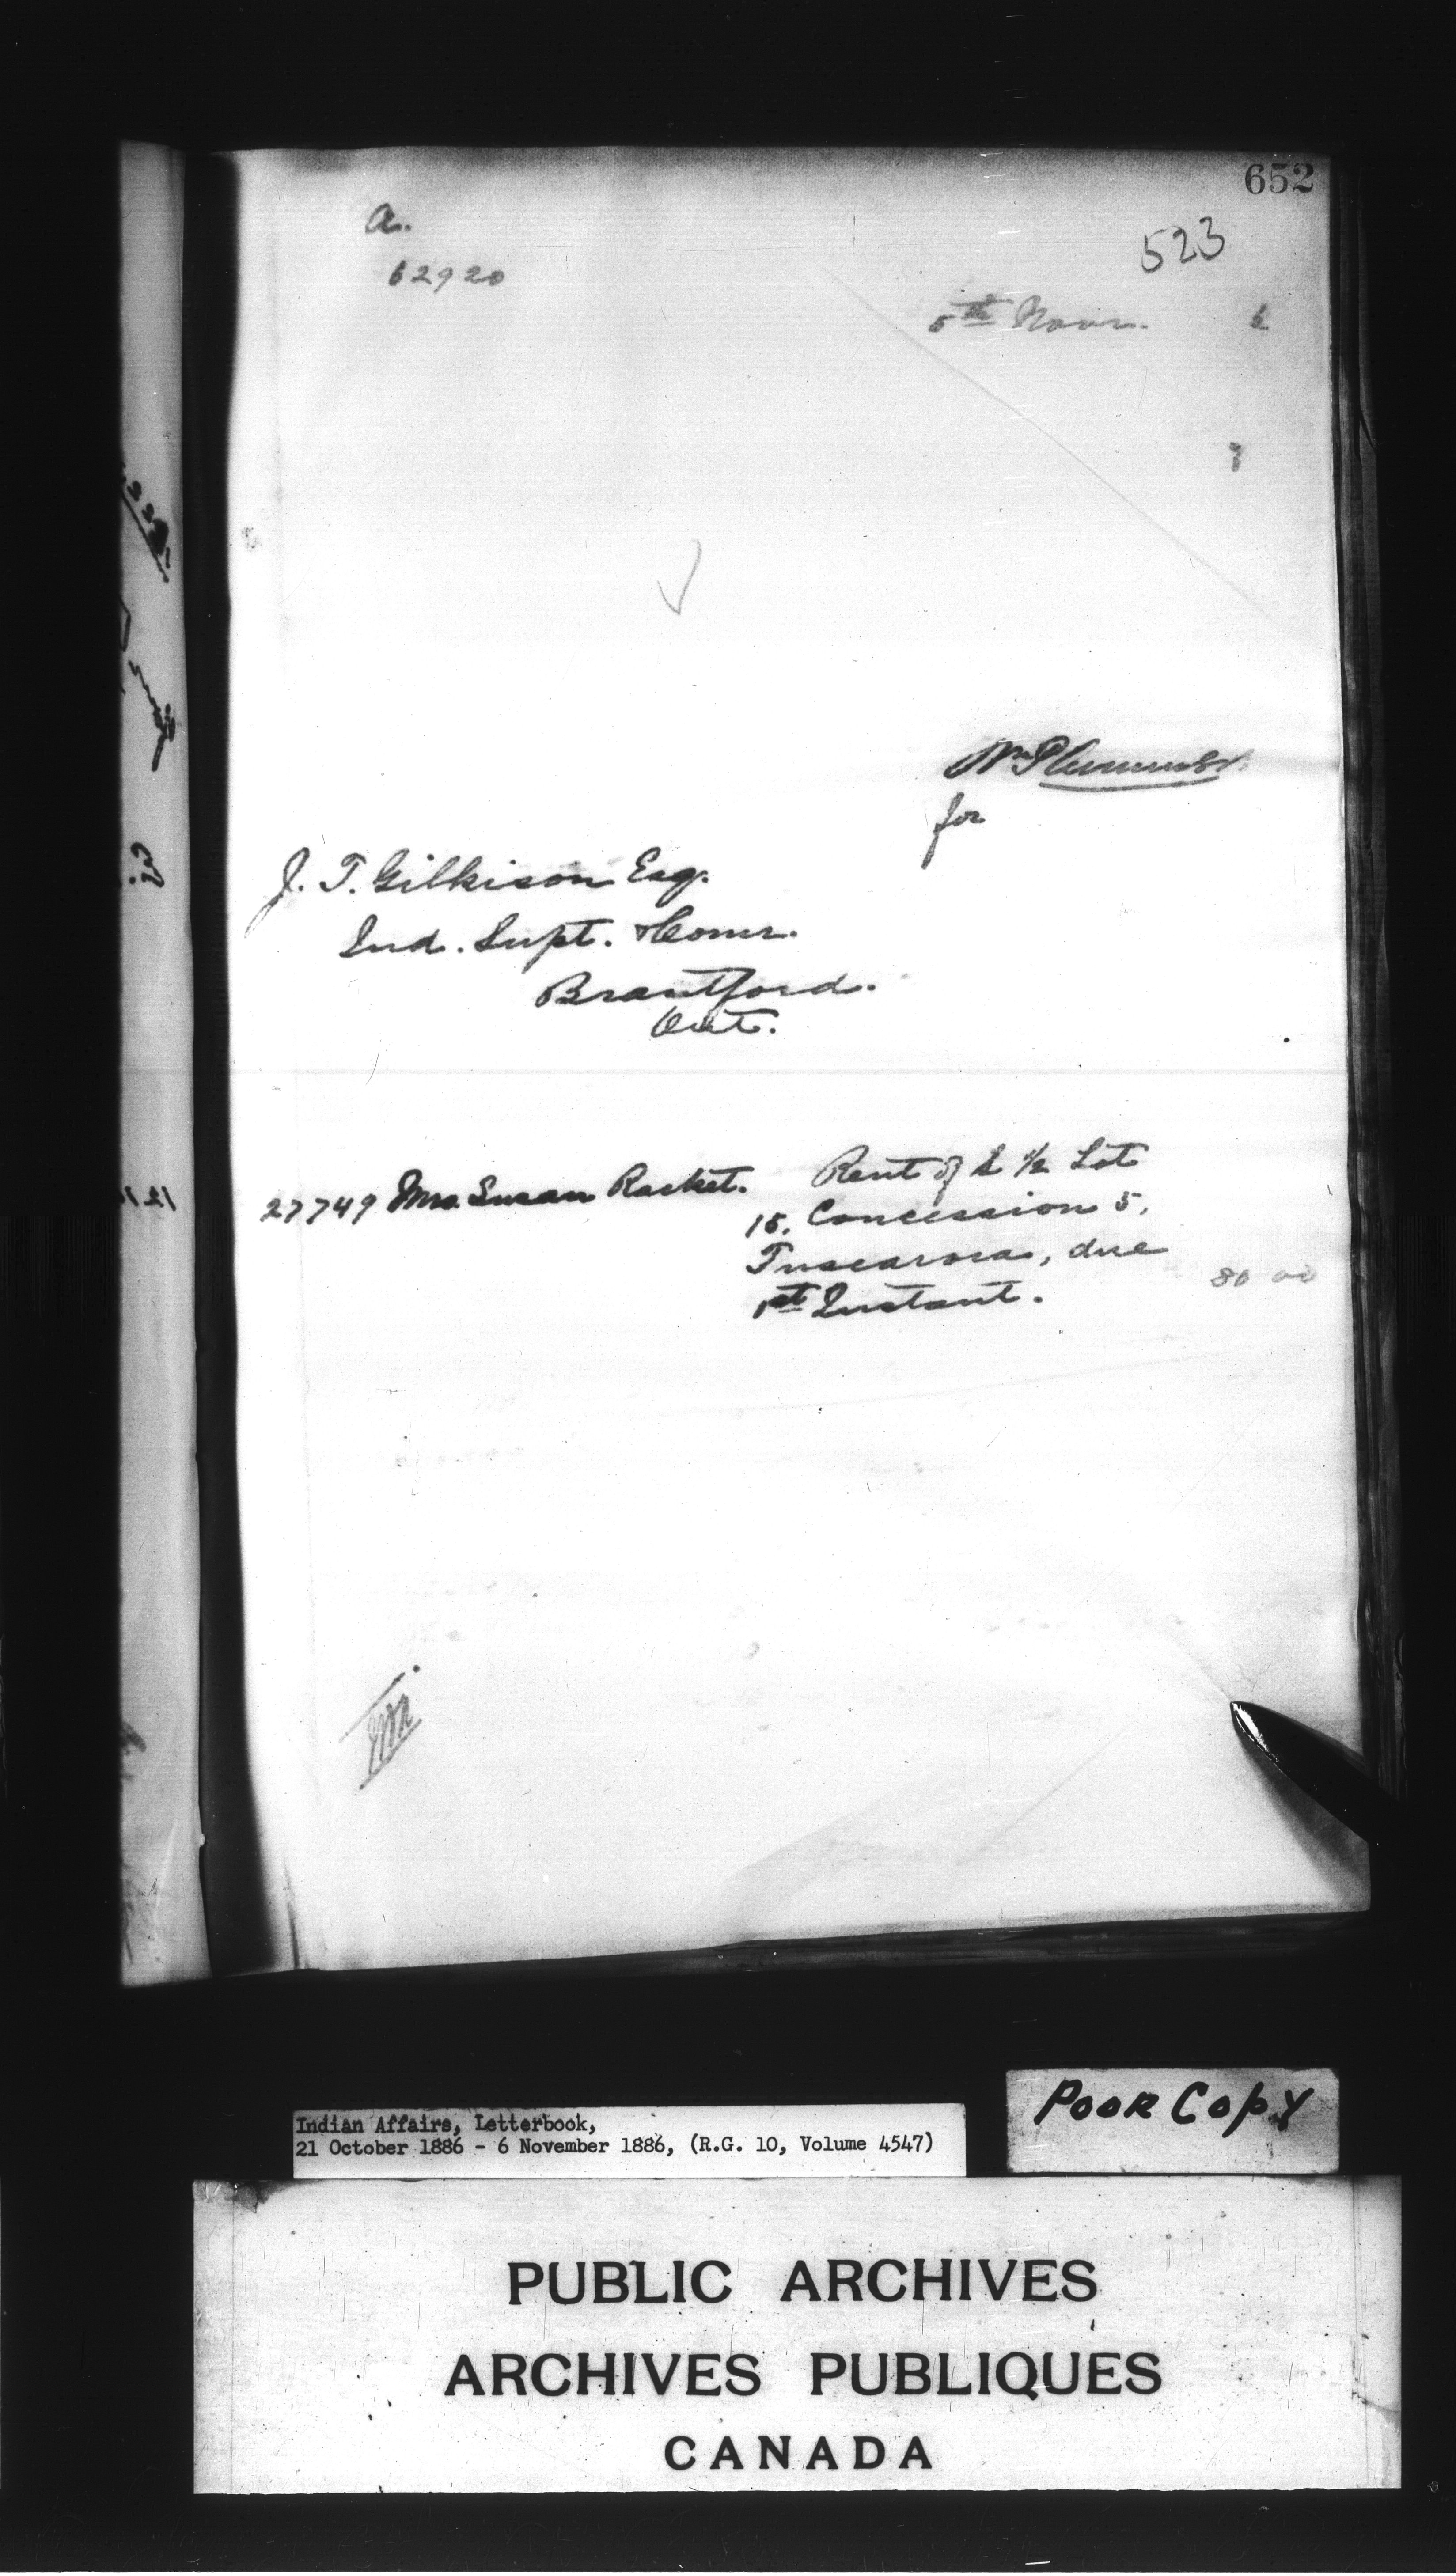 652
523
a.
62920
5th Novr. 6
Wm Plummer
for
J. T. Gilkison Esq.
Ind. Supt. & Comr.
Brantford.
Ont.
27749 Mrs. Susan Racket. Rent of S 1/2 Lot
15. Concession 5,
Tuscarora, due
1st Instant. 80 00
Poor Copy
Indian Affairs, Letterbook,
21 October 1886 - 6 November 1886, (R.G. 10, Volume 4547)
PUBLIC ARCHIVES
ARCHIVES PUBLIQUES
CANADA